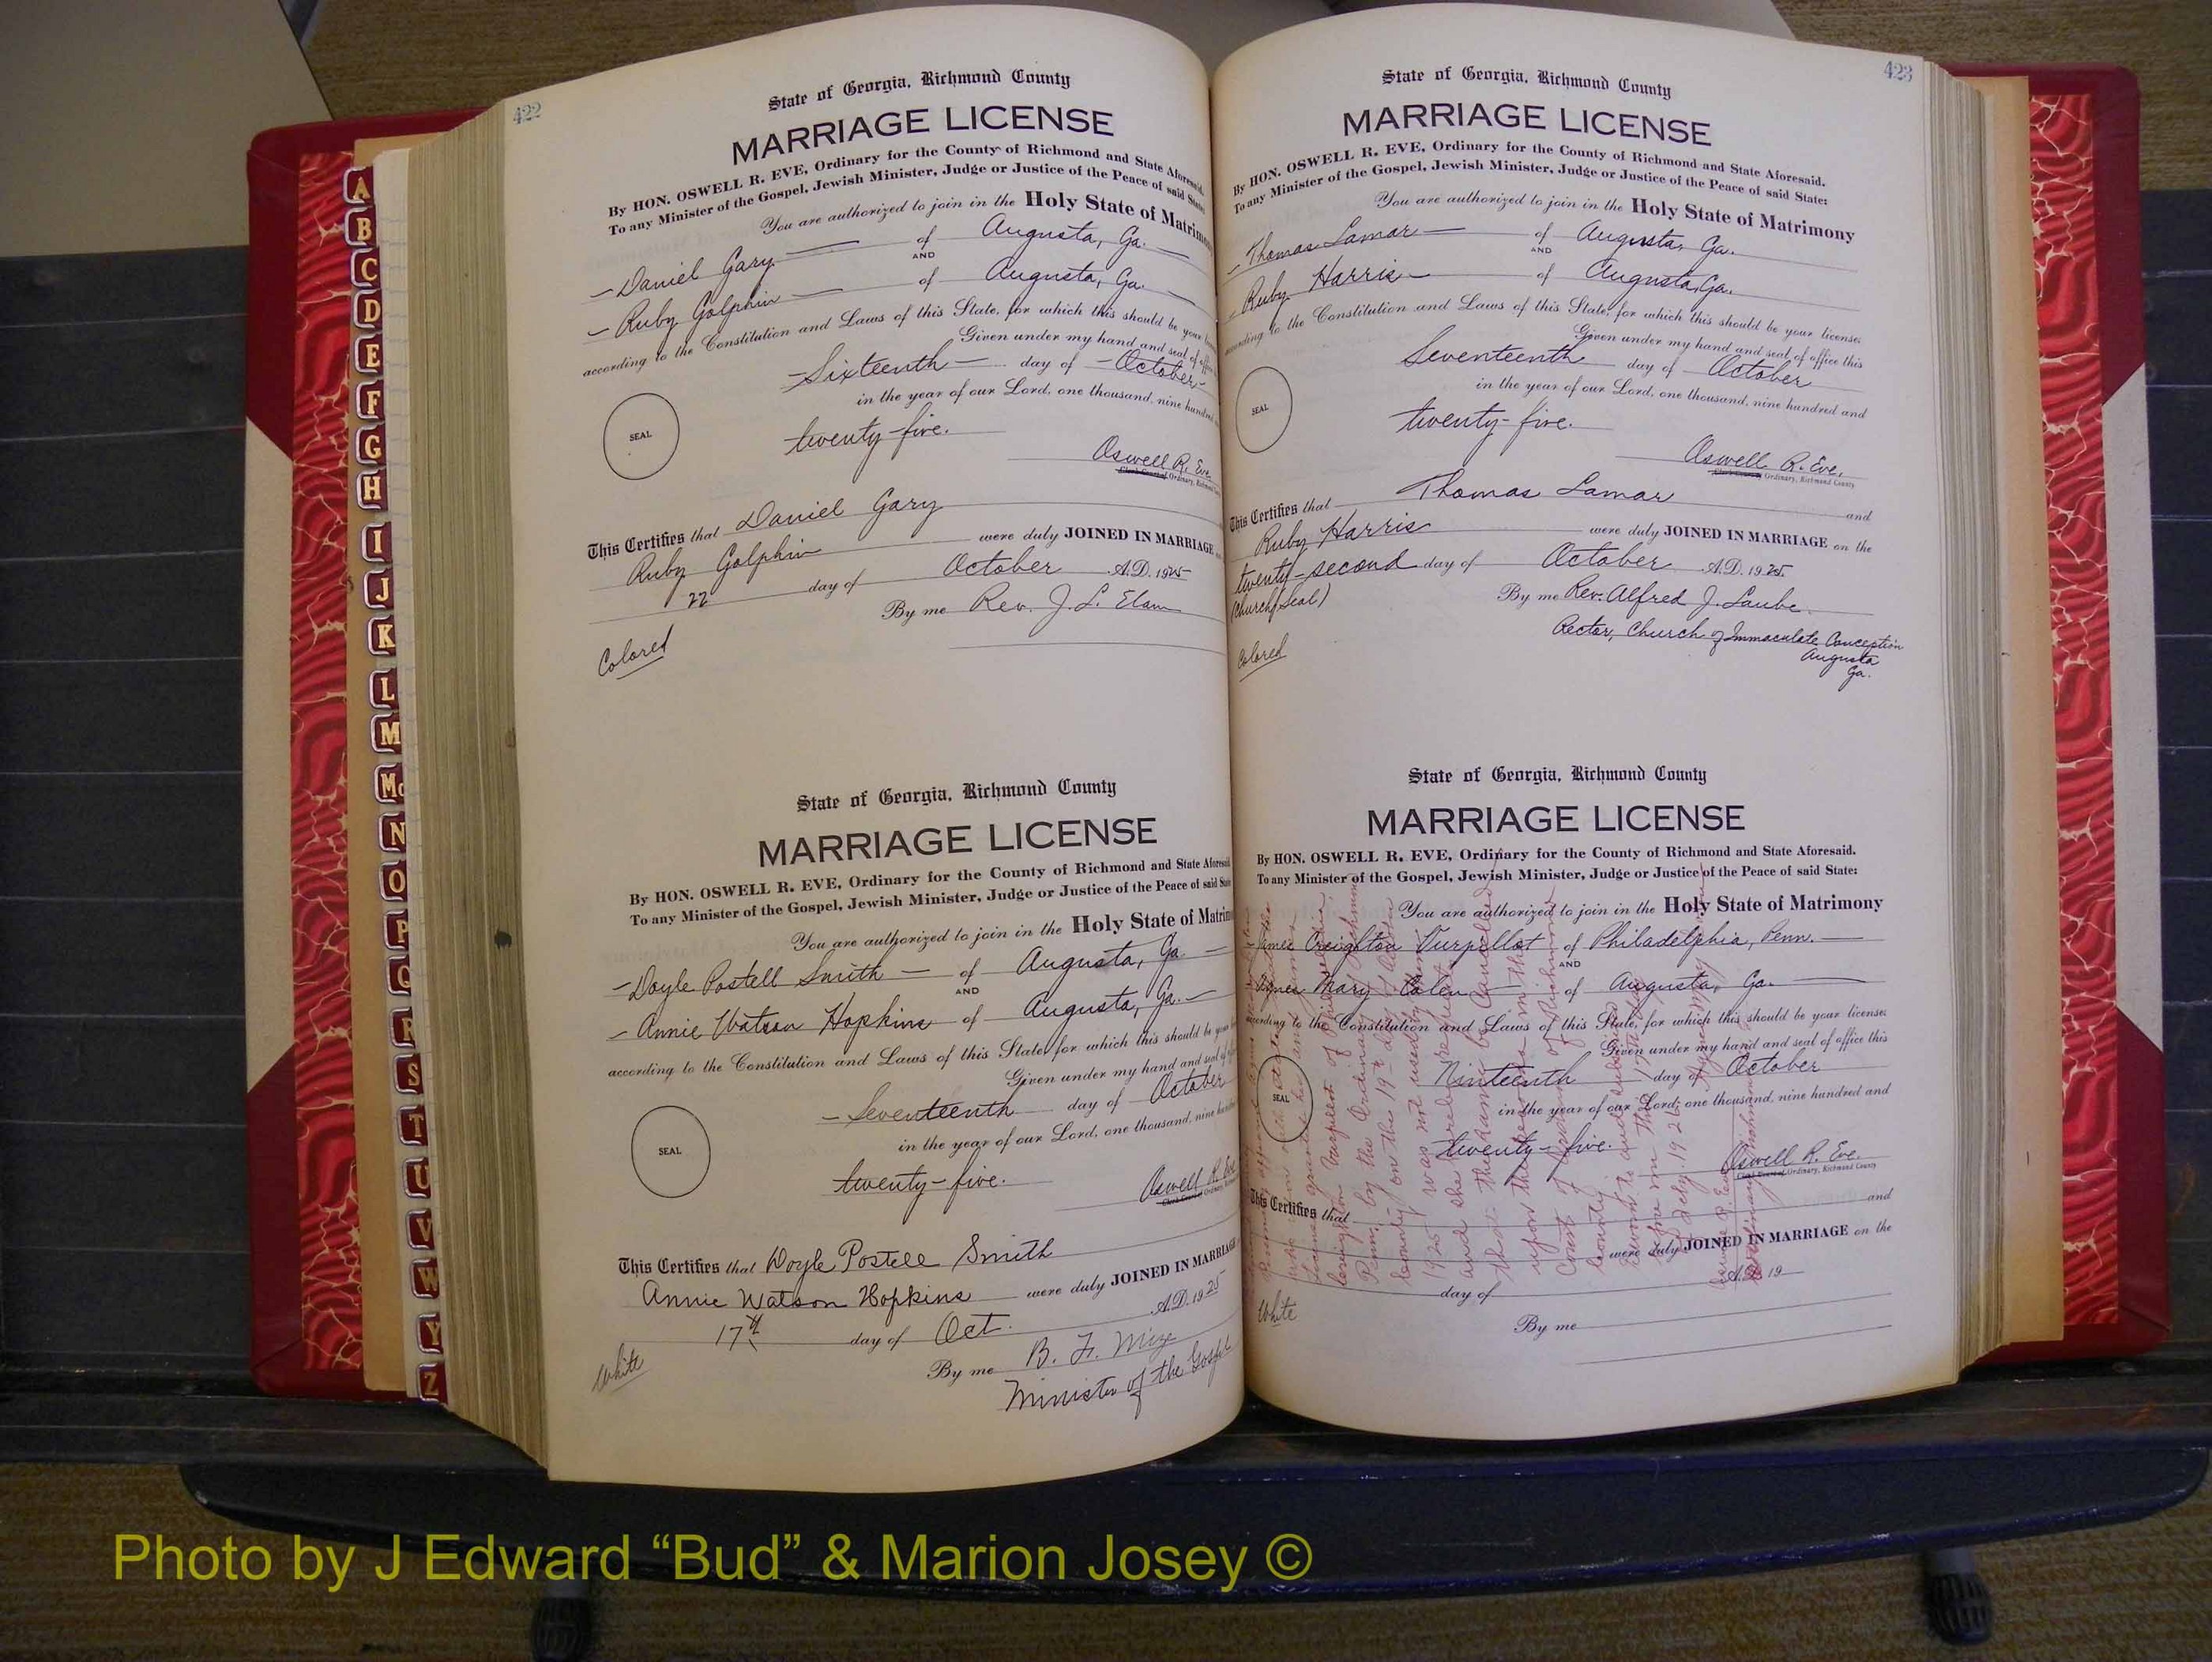 422
State of Georgia, Richmond County
MARRIAGE LICENSE
By HON. OSWELL R. EVE, Ordinary for the County of Richmond and State Aforesaid.
To any Minister of the Gospel, Jewish Minister, Judge or Justice of the Peace of said State:
You are authorized to join in the Holy State of Matrimony
Daniel Gary of Augusta, Ga.
AND
Ruby Golphin of Augusta, Ga.
according to the Constitution and Laws of this State, for which this should be your
Given under my hand and seal of
Sixteenth day of October
in the year of our Lord, one thousand, nine hundred
SEAL
twenty-five.
Oswell R. Eve
Clerk Court of Ordinary,
This Certifies that Daniel Gary
Ruby Golphin were duly JOINED IN MARRIAGE
22 day of October A.D. 1925
By me Rev. J. L. Elam
Colored
State of Georgia, Richmond County
MARRIAGE LICENSE
By HON. OSWELL R. EVE, Ordinary for the County of Richmond and State Aforesaid
To any Minister of the Gospel, Jewish Minister, Judge or Justice of the Peace of said State
You are authorized to join in the Holy State of Matrim
Doyle Postell Smith of Augusta, Ga
AND
Annie Watson Hopkins of Augusta, Ga.
according to the Constitution and Laws of this State, for which this should be your
Given under my hand and seal of
Seventeenth day of October
in the year of our Lord, one thousand, nine
SEAL
twenty-five.
Oswell R. Eve
Clerk Court of Ordinary,
This Certifies that Doyle Postell Smith
Annie Watson Hopkins were duly JOINED IN MARRIAGE
17th day of Oct. A.D. 1925
By me B. F. Mize
Minister of the Gospel
White
423
State of Georgia, Richmond County
MARRIAGE LICENSE
By HON. OSWELL R. EVE, Ordinary for the County of Richmond and State Aforesaid.
To any Minister of the Gospel, Jewish Minister, Judge or Justice of the Peace of said State:
You are authorized to join in the Holy State of Matrimony
Thomas Lamar of Augusta, Ga.
AND
Ruby Harris of Augusta, Ga.
according to the Constitution and Laws of this State, for which this should be your license;
Given under my hand and seal of office this
Seventeenth day of October
in the year of our Lord, one thousand, nine hundred and
SEAL
twenty-five.
Oswell R. Eve.
Clerk Court of Ordinary, Richmond County
This Certifies that Thomas Lamar and
Ruby Harris were duly JOINED IN MARRIAGE on the
twenty-second day of October A.D. 1925.
(Church Seal) By me Rev. Alfred J. Laube.
Rector, Church of Immaculate Conception
Augusta
Ga.
Colored
State of Georgia, Richmond County
MARRIAGE LICENSE
By HON. OSWELL R. EVE, Ordinary for the County of Richmond and State Aforesaid.
To any Minister of the Gospel, Jewish Minister, Judge or Justice of the Peace of said State:
You are authorized to join in the Holy State of Matrimony
Creighton of Philadelphia, Penn.
AND
Mary of Augusta, Ga.
according to the Constitution and Laws of this State, for which this should be your license;
Given under my hand and seal of office this
Ninteenth day of October
in the year of our Lord, one thousand, nine hundred and
SEAL
twenty-five.
Oswell R. Eve.
Clerk Court of Ordinary, Richmond County
This Certifies that and
were duly JOINED IN MARRIAGE on the
day of A.D. 19
By me
White
of Philadelphia
Penn. by the Ordinary
County on the 19th day of
1925 was not used
and she
that the same be cancelled
upon the
Court of of Richmond
County
Sworn to and subscribed
before me this 17th day
of July 1926
A
B
C
D
E
F
G
H
I
J
K
L
M
Mc
N
O
P
Q
R
S
T
U
V
W
Y
Z
Photo by J Edward “Bud” & Marion Josey ©